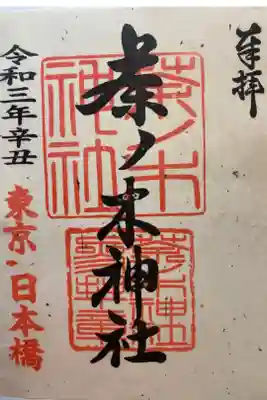 奉拝
茶ノ木神社
茶ノ木
神社
令和三年辛丑
東京・日本橋